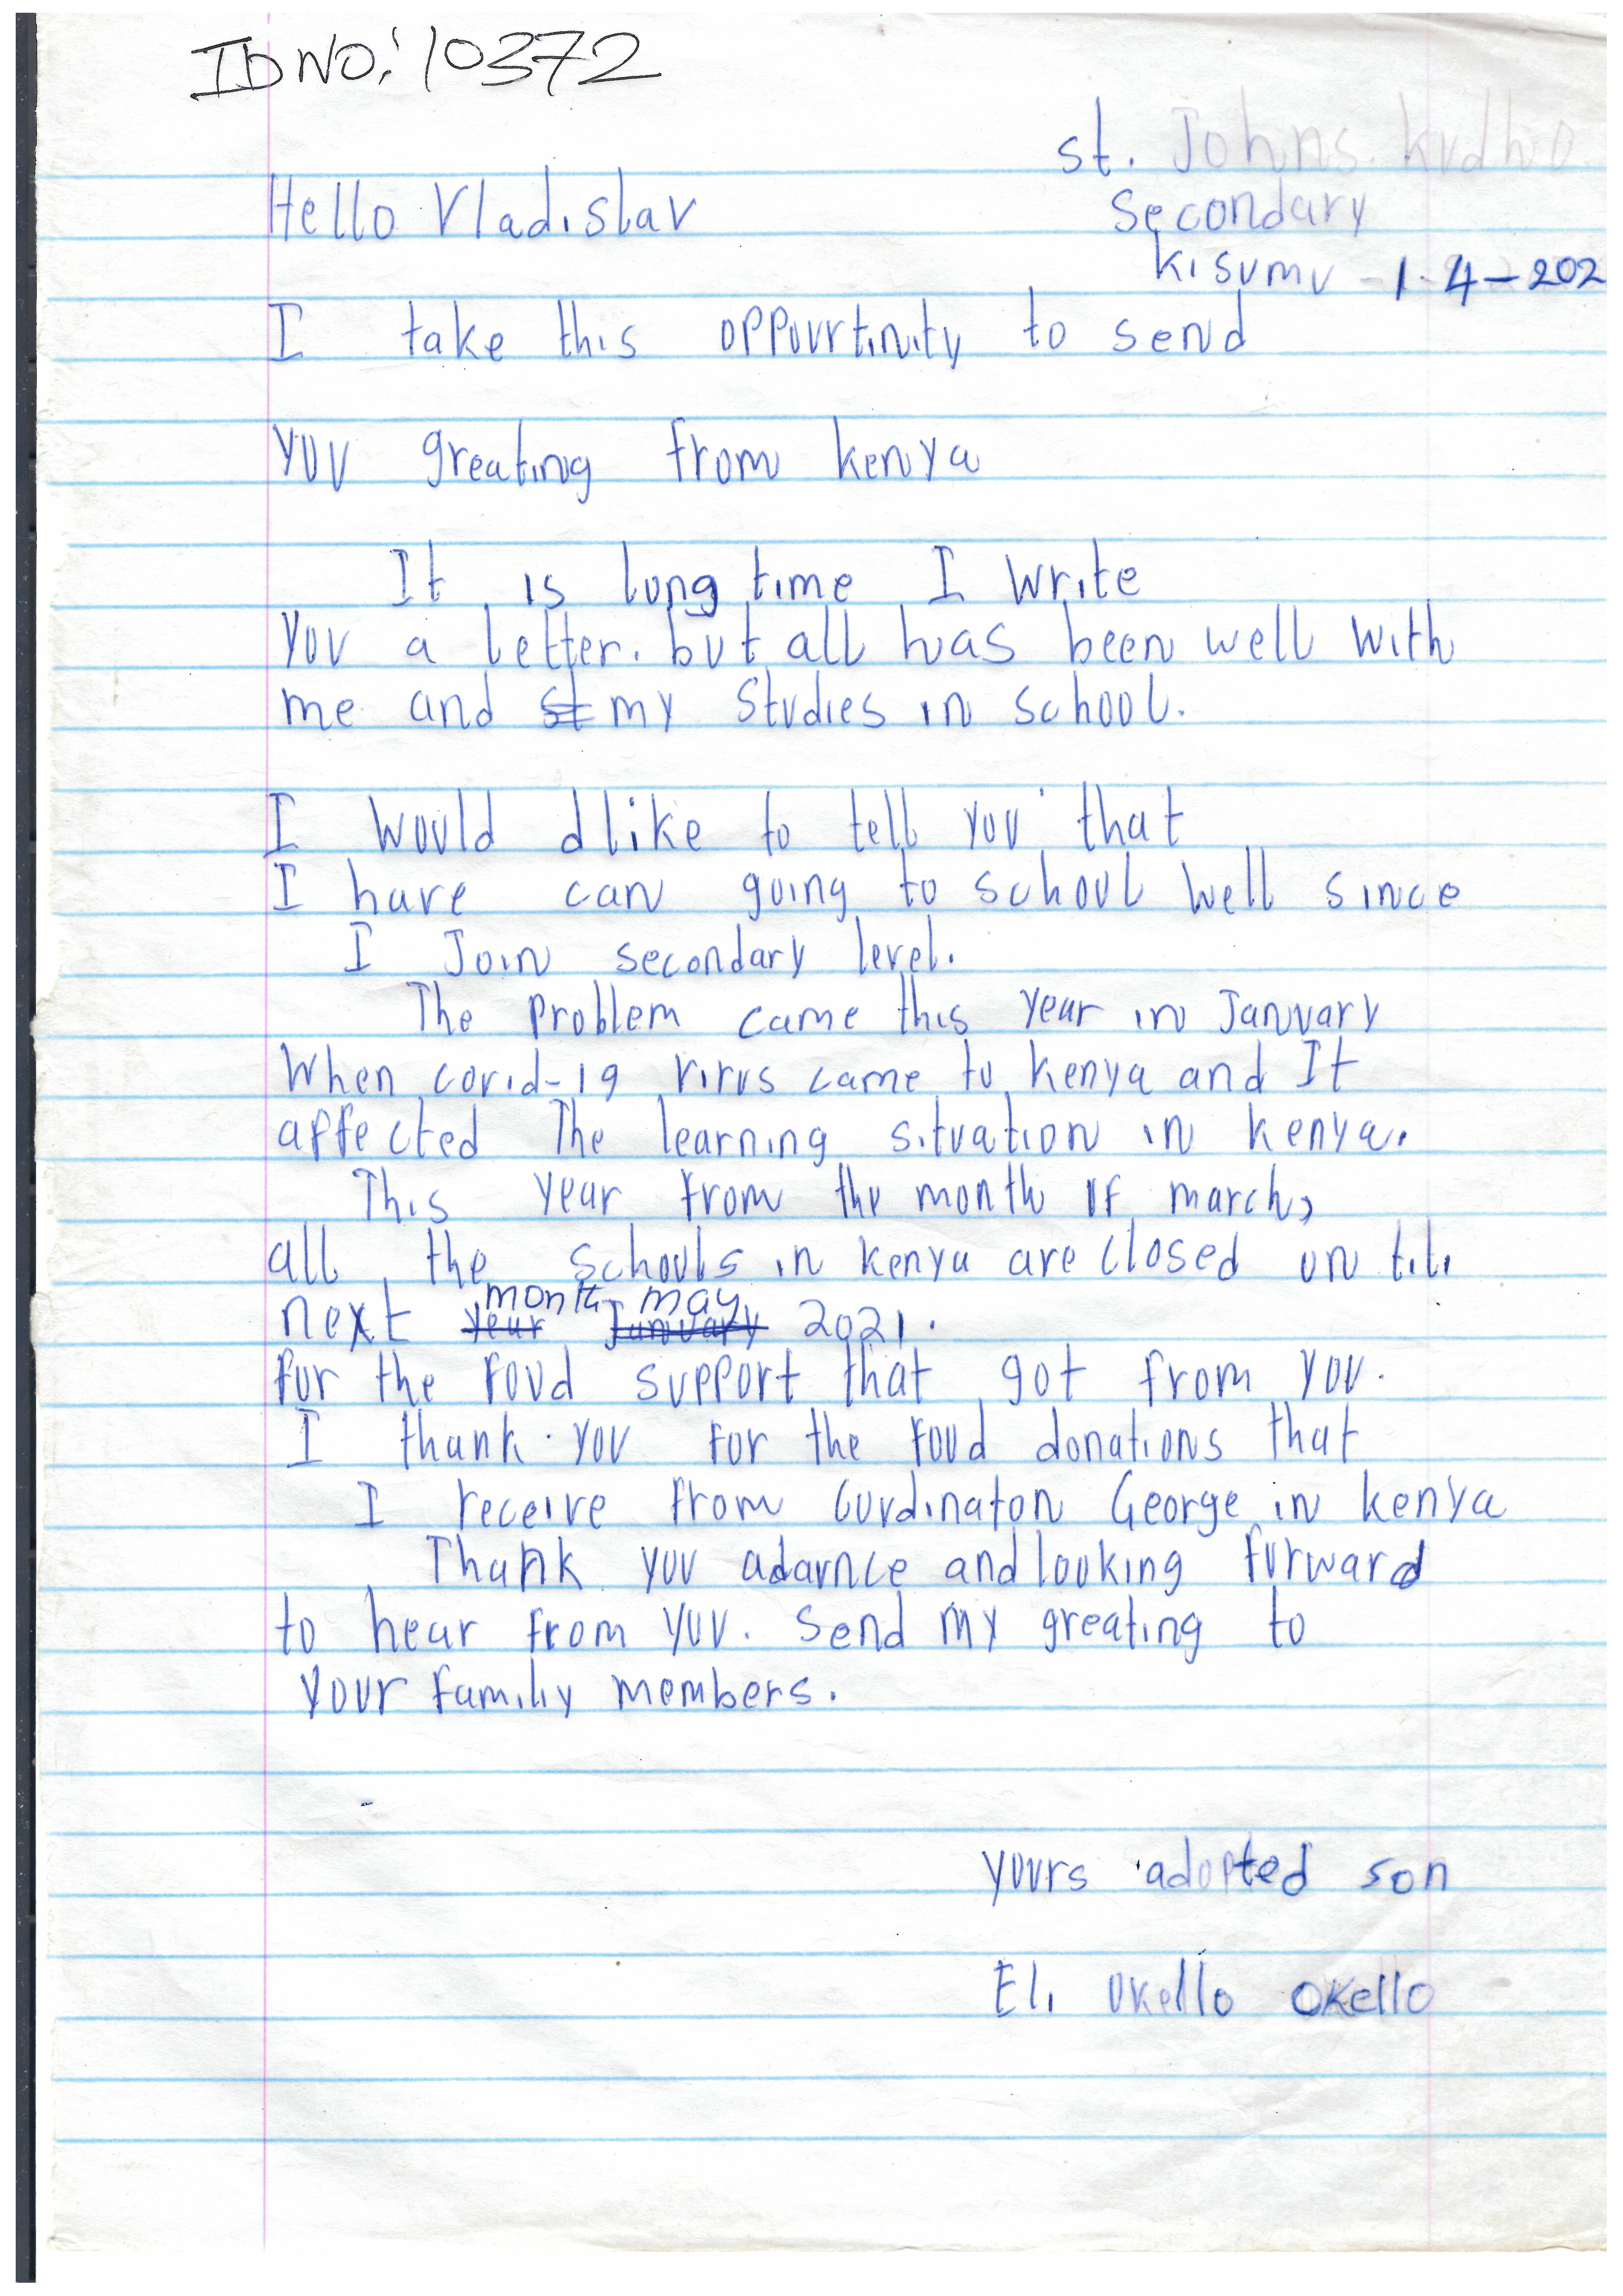 ID NO: 10372
st. Johns. kudho
Hello Vladislav
Secondary
kisumu - 1-4-202
I take this oppourtinity to send
you greating from kenya
It is long time I write
you a letter. but all has been well with
me and st my studies in school.
I would dlike to tell you that
I have can going to school well since
I Join secondary level.
The problem came this year in January
When covid-19 virus came to kenya and It
affected The learning situation in kenya.
This year from the month of march,
all the schools in kenya are closed un till
month may
next year January 2021.
for the food support that got from you.
I thank you for the food donations that
I receive from Cordinaton George in kenya
Thank you adavnce and looking forward
to hear from you. Send my greating to
your familiy members.
yours adopted son
Eli Okello Okello